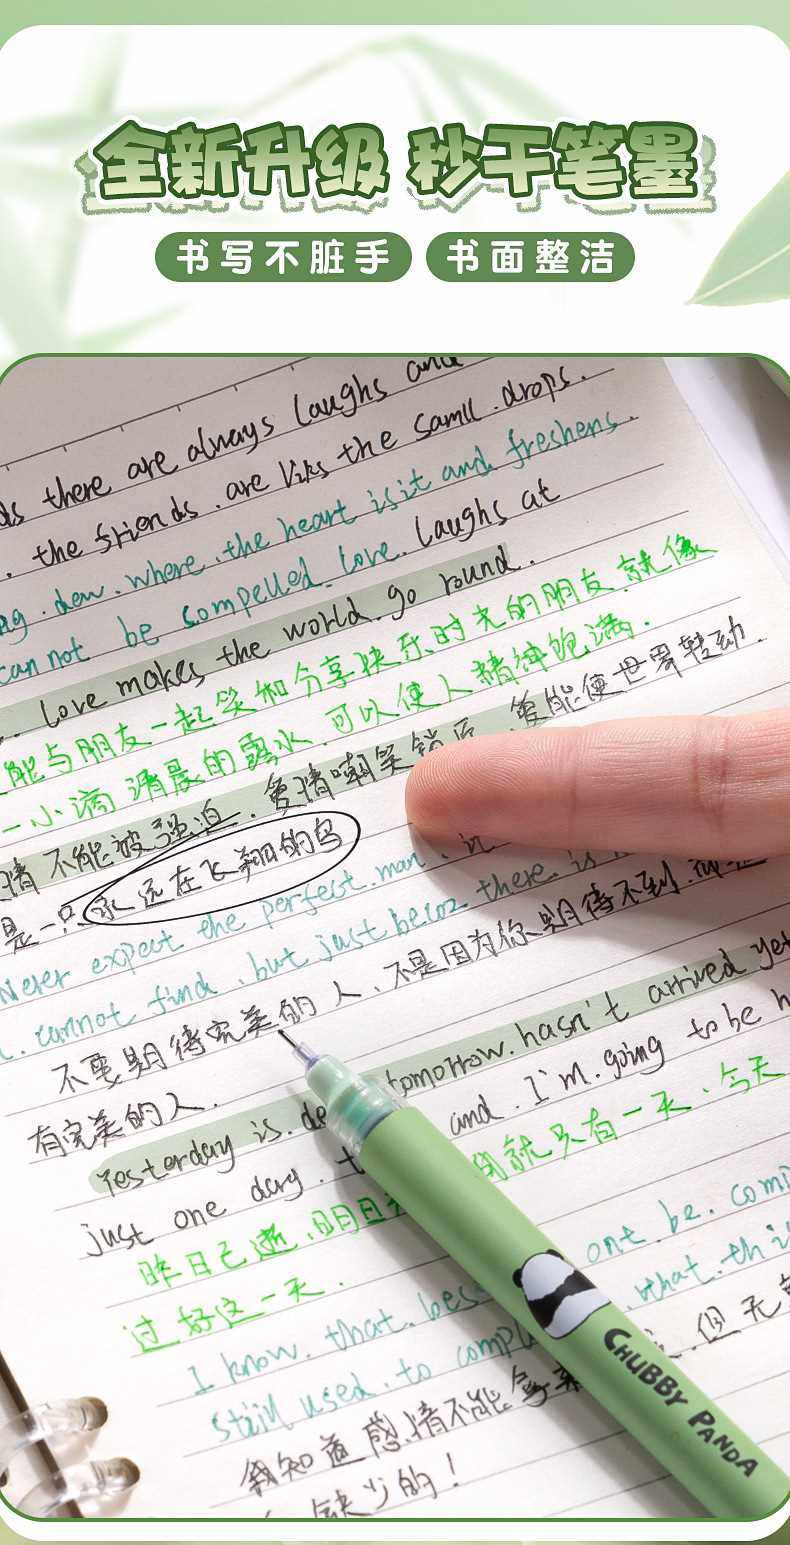 全新升级 秒干笔墨
书写不脏手 书面整洁
there are always laughs and
. the friends . are liks the samll . drops .
. dew . where . the heart is it and freshens .
can not be compelled . love . laughs at
. love makes the world . go round .
能与朋友一起笑和分享快乐时光的朋友就像
一小滴清晨的露水 . 可以使人精神饱满 .
情不能被强迫 . 爱情嘲笑锁匠 . 爱能使世界转动 .
是一只永远在飞翔的鸟
Never expect the perfect . man .
. cannot find . but just becoz there is
不要期待完美的人 、不是因为你期待不到 .
有完美的人 .
Yesterday is . tomorrow . hasn't arrived yet
just one day . and . I'm . going to be
昨日已逝 , 明日 就只有一天 . 今天
过好这一天 .
I know . that . one . be .
still used . to what . thi
我知道感情不能 但无
缺少的!
CHUBBY PANDA